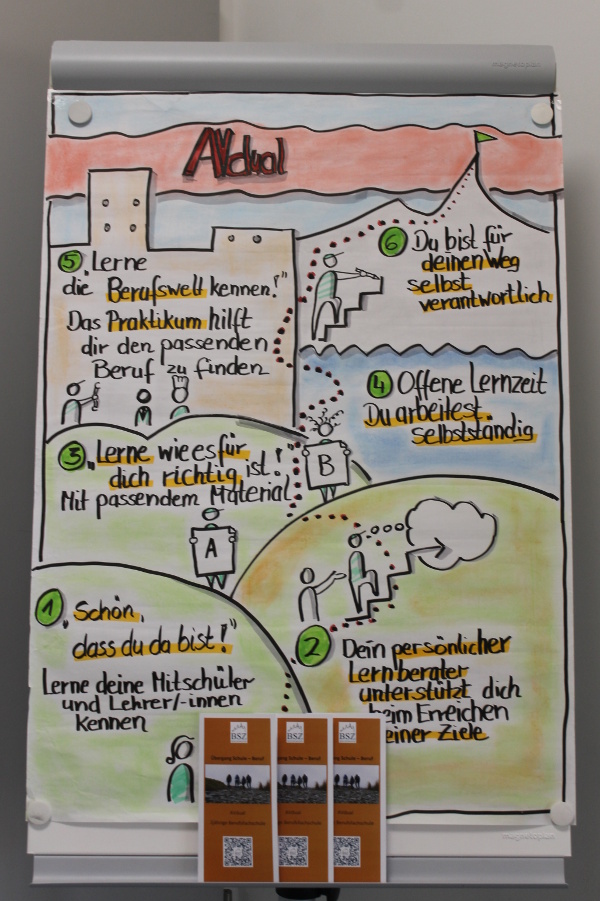 magnetoplan
AVdual
5 „Lerne
die Berufswelt kennen!"
Das Praktikum hilft
dir den passenden
Beruf zu finden
6 Du bist für
deinen Weg
selbst
verantwortlich
4 Offene Lernzeit
Du arbeitest
selbstständig
3 „Lerne wie es für
dich richtig ist!"
Mit passendem Material
B
A
1 „Schön,
dass du da bist!"
Lerne deine Mitschüler
und Lehrer/-innen
kennen
2 Dein persönlicher
Lernberater
unterstützt dich
beim Erreichen
einer Ziele
BSZ
BSZ
BSZ
Übergang Schule – Beruf
gang Schule – Beruf
Schule – Beruf
AVdual
AVdual
AVdual
magnetoplan